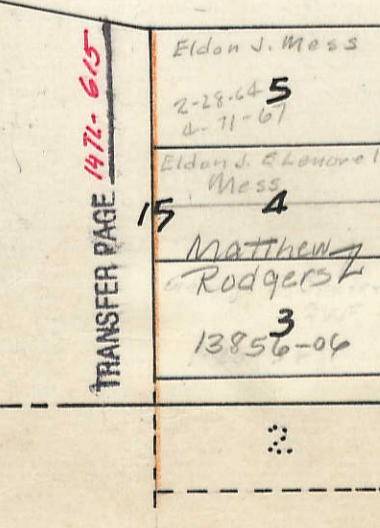 TRANSFER PAGE 1471-615
Eldon J. Mess
5
2-28-64
4-71-67
Eldon J. & Lenore
Mess
15
4
Matthew
Rodgers
3
13856-06
2